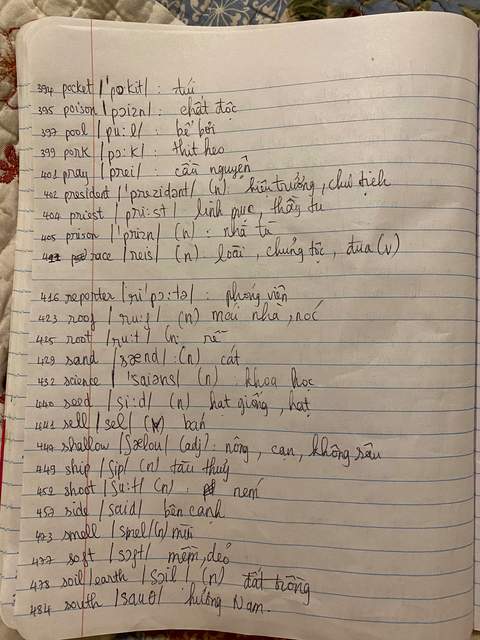 394 pocket /'pɒkit/ : túi
395 poison /'pɔizn/ : chất độc
397 pool /pu:l/ : bể bơi
399 pork /pɔ:k/ : thịt heo
401 pray /prei/ : cầu nguyện
402 president /'prezidənt/ (n) hiệu trưởng, chủ tịch
404 priest /pri:st/ linh mục, thầy tu
405 prison /'prizn/ (n) : nhà tù
race /reis/ (n) : loài, chủng tộc, đua (v)
416 reporter /ri'pɔ:tə/ : phóng viên
423 roof /ru:f/ (n) mái nhà, nóc
425 root /ru:t/ (n : rễ
429 sand /sænd/ : (n) cát
432 science /'saiəns/ (n) : khoa học
440 seed /si:d/ (n) hạt giống, hạt
441 sell /sel/ (v) bán
447 shallow /ʃælou/ (adj) : nông, cạn, không sâu
449 ship /ʃip/ (n) tàu thuỷ
452 shoot /ʃu:t/ (n) : ném
457 side /said/ bên cạnh
473 smell /smel/(n) mùi
477 soft /sɔft/ mềm, dẻo
478 soil/earth /sɔil/, (n) đất trồng
484 south /sauθ/ hướng Nam.